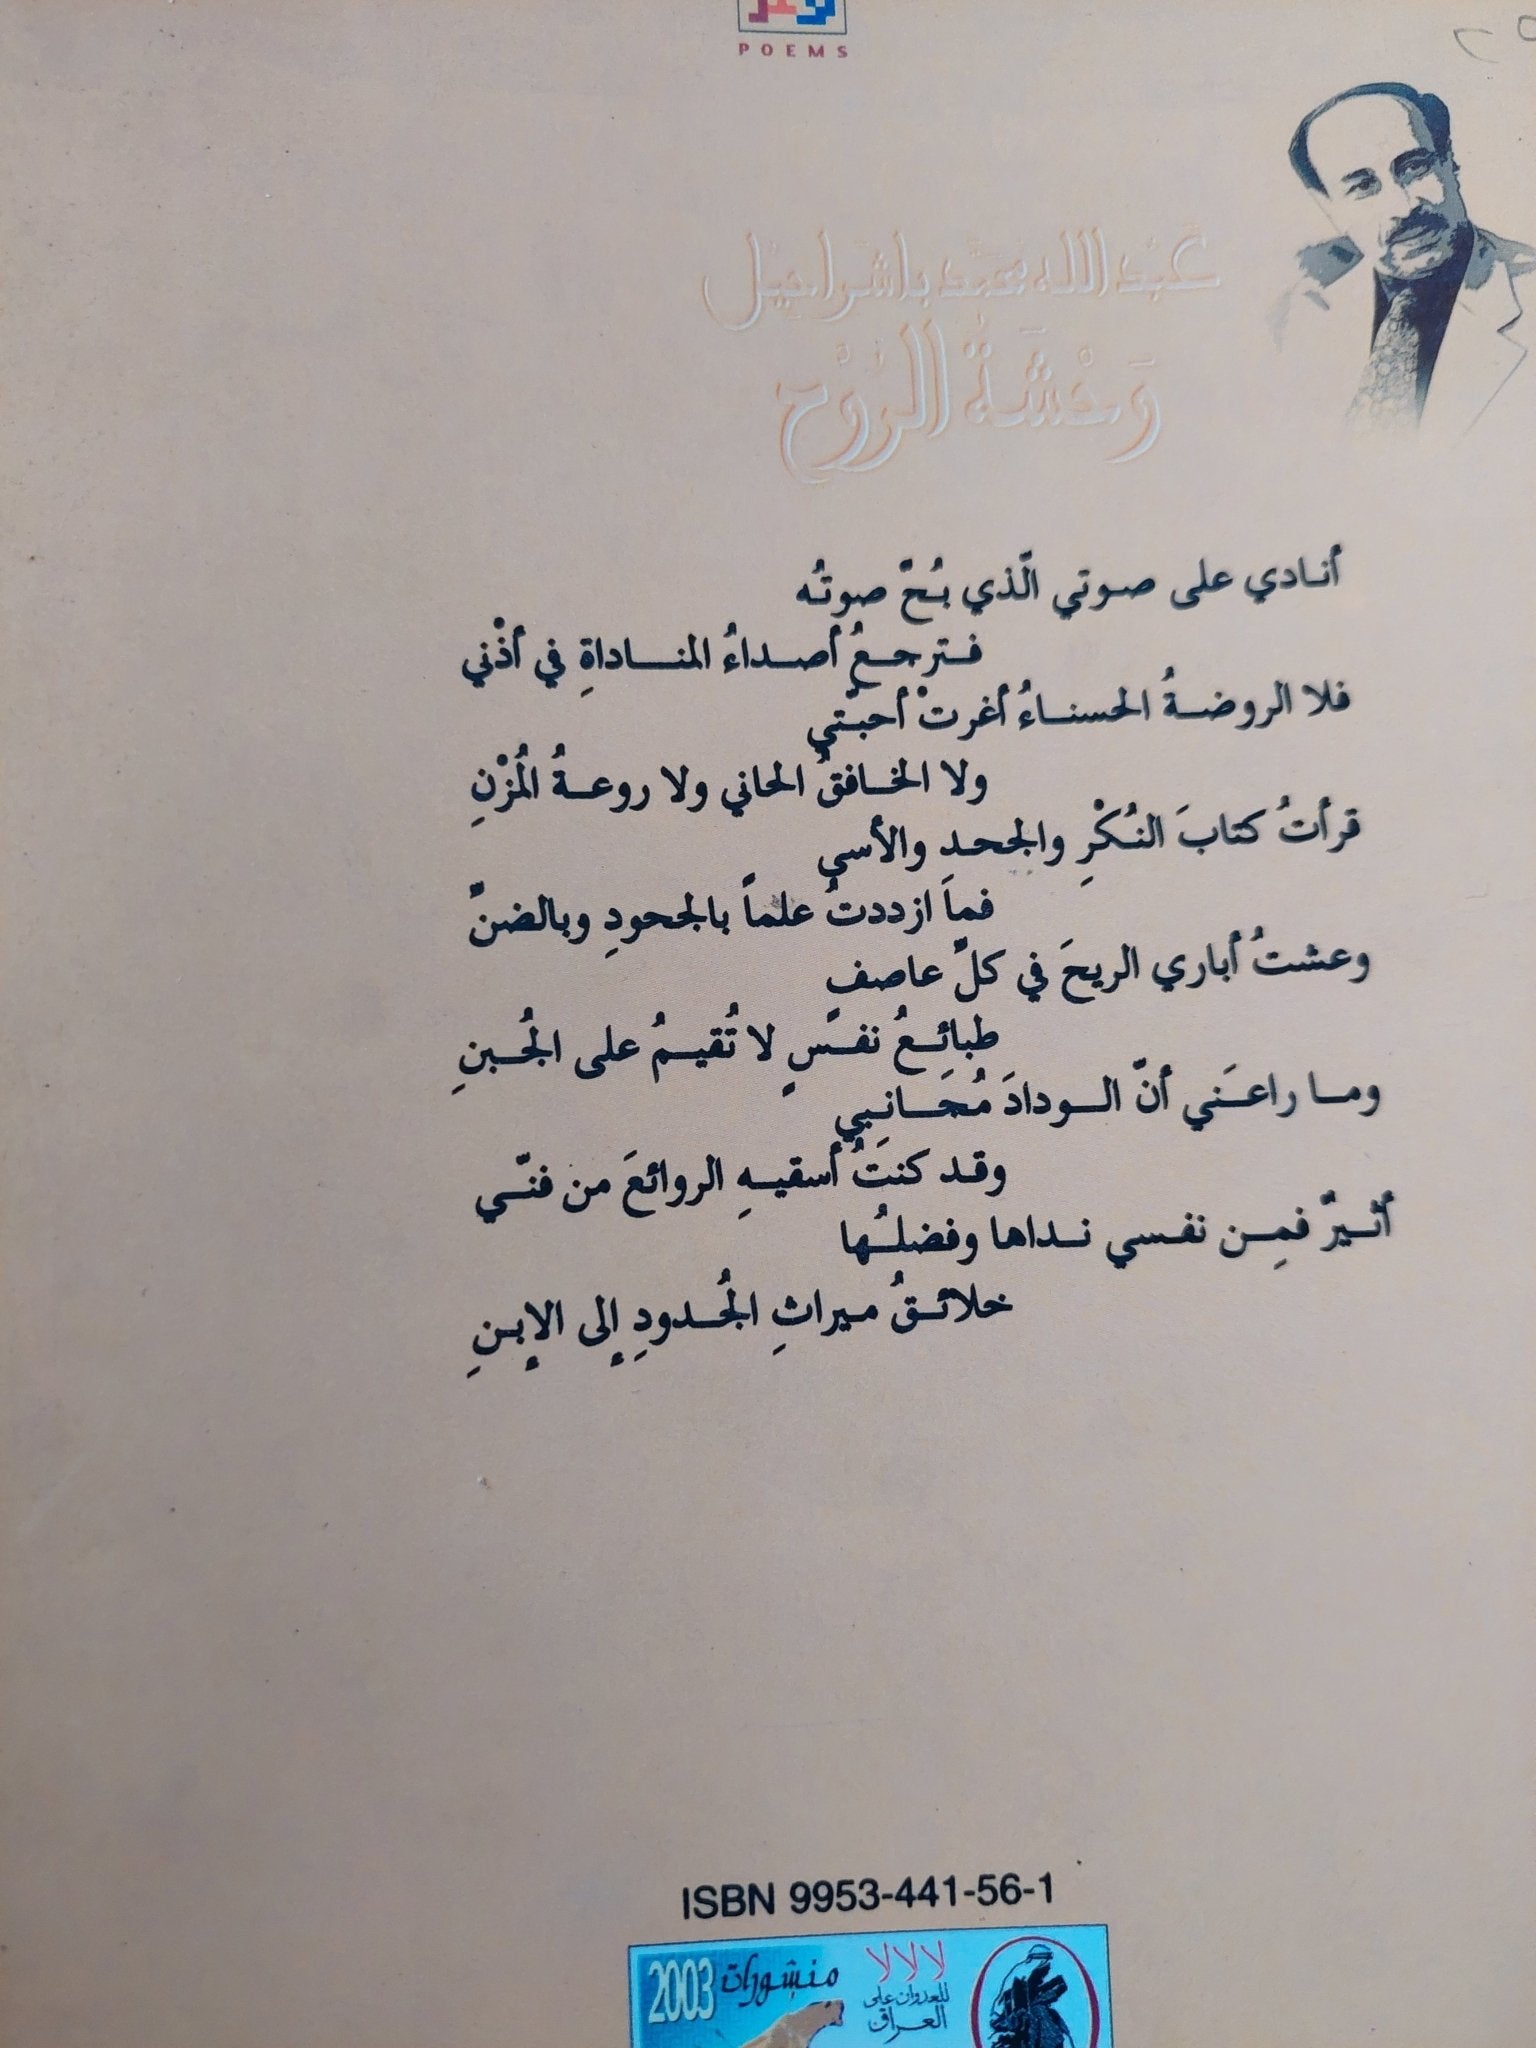 POEMS
عَبد الله محمَّد باشراحيل
وَحْشَةُ الرُوْح
أنادي على صوتي الّذي بُحَّ صوتُه
فترجعُ أصداءُ المناداةِ في أذْني
فلا الروضةُ الحسناءُ أغرتْ أحبّتي
ولا الخافقُ الحاني ولا روعةُ المُزْنِ
قرأتُ كتابَ النُكْرِ والجحدِ والأسى
فما ازددتُ علماً بالجحودِ وبالضنِّ
وعشتُ أباري الريحَ في كلِّ عاصفٍ
طبائِعُ نفسٍ لا تُقيمُ على الجُبنِ
وما راعَني أنّ الودادَ مُجَانِبي
وقد كنتُ أسقيهِ الروائعَ من فنّي
أثيرٌ فمِن نفسي نداها وفضلُها
خلائقُ ميراثِ الجُدودِ إلى الإبنِ
ISBN 9953-441-56-1
لا لا لا
للعدوان على
العراق
منشورات 2003